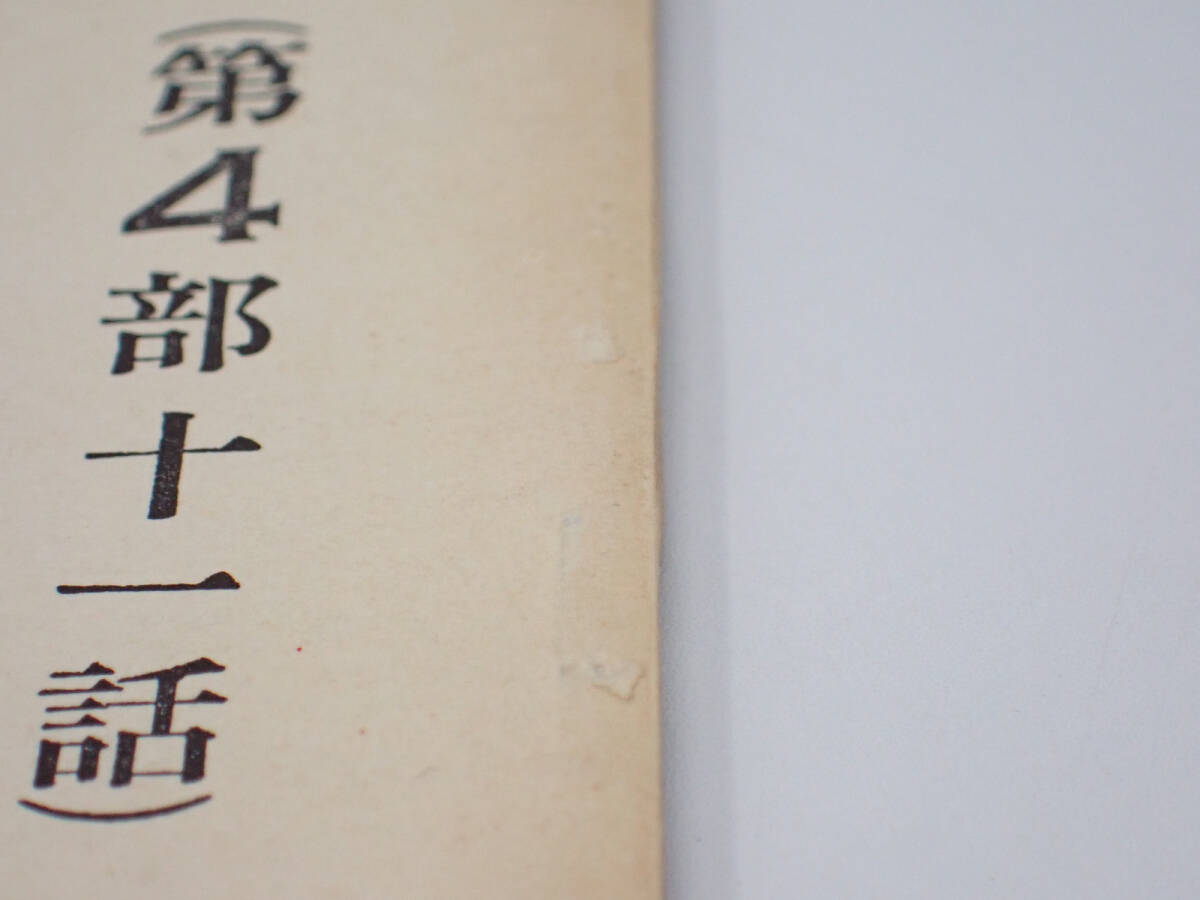 （第4部十一話）